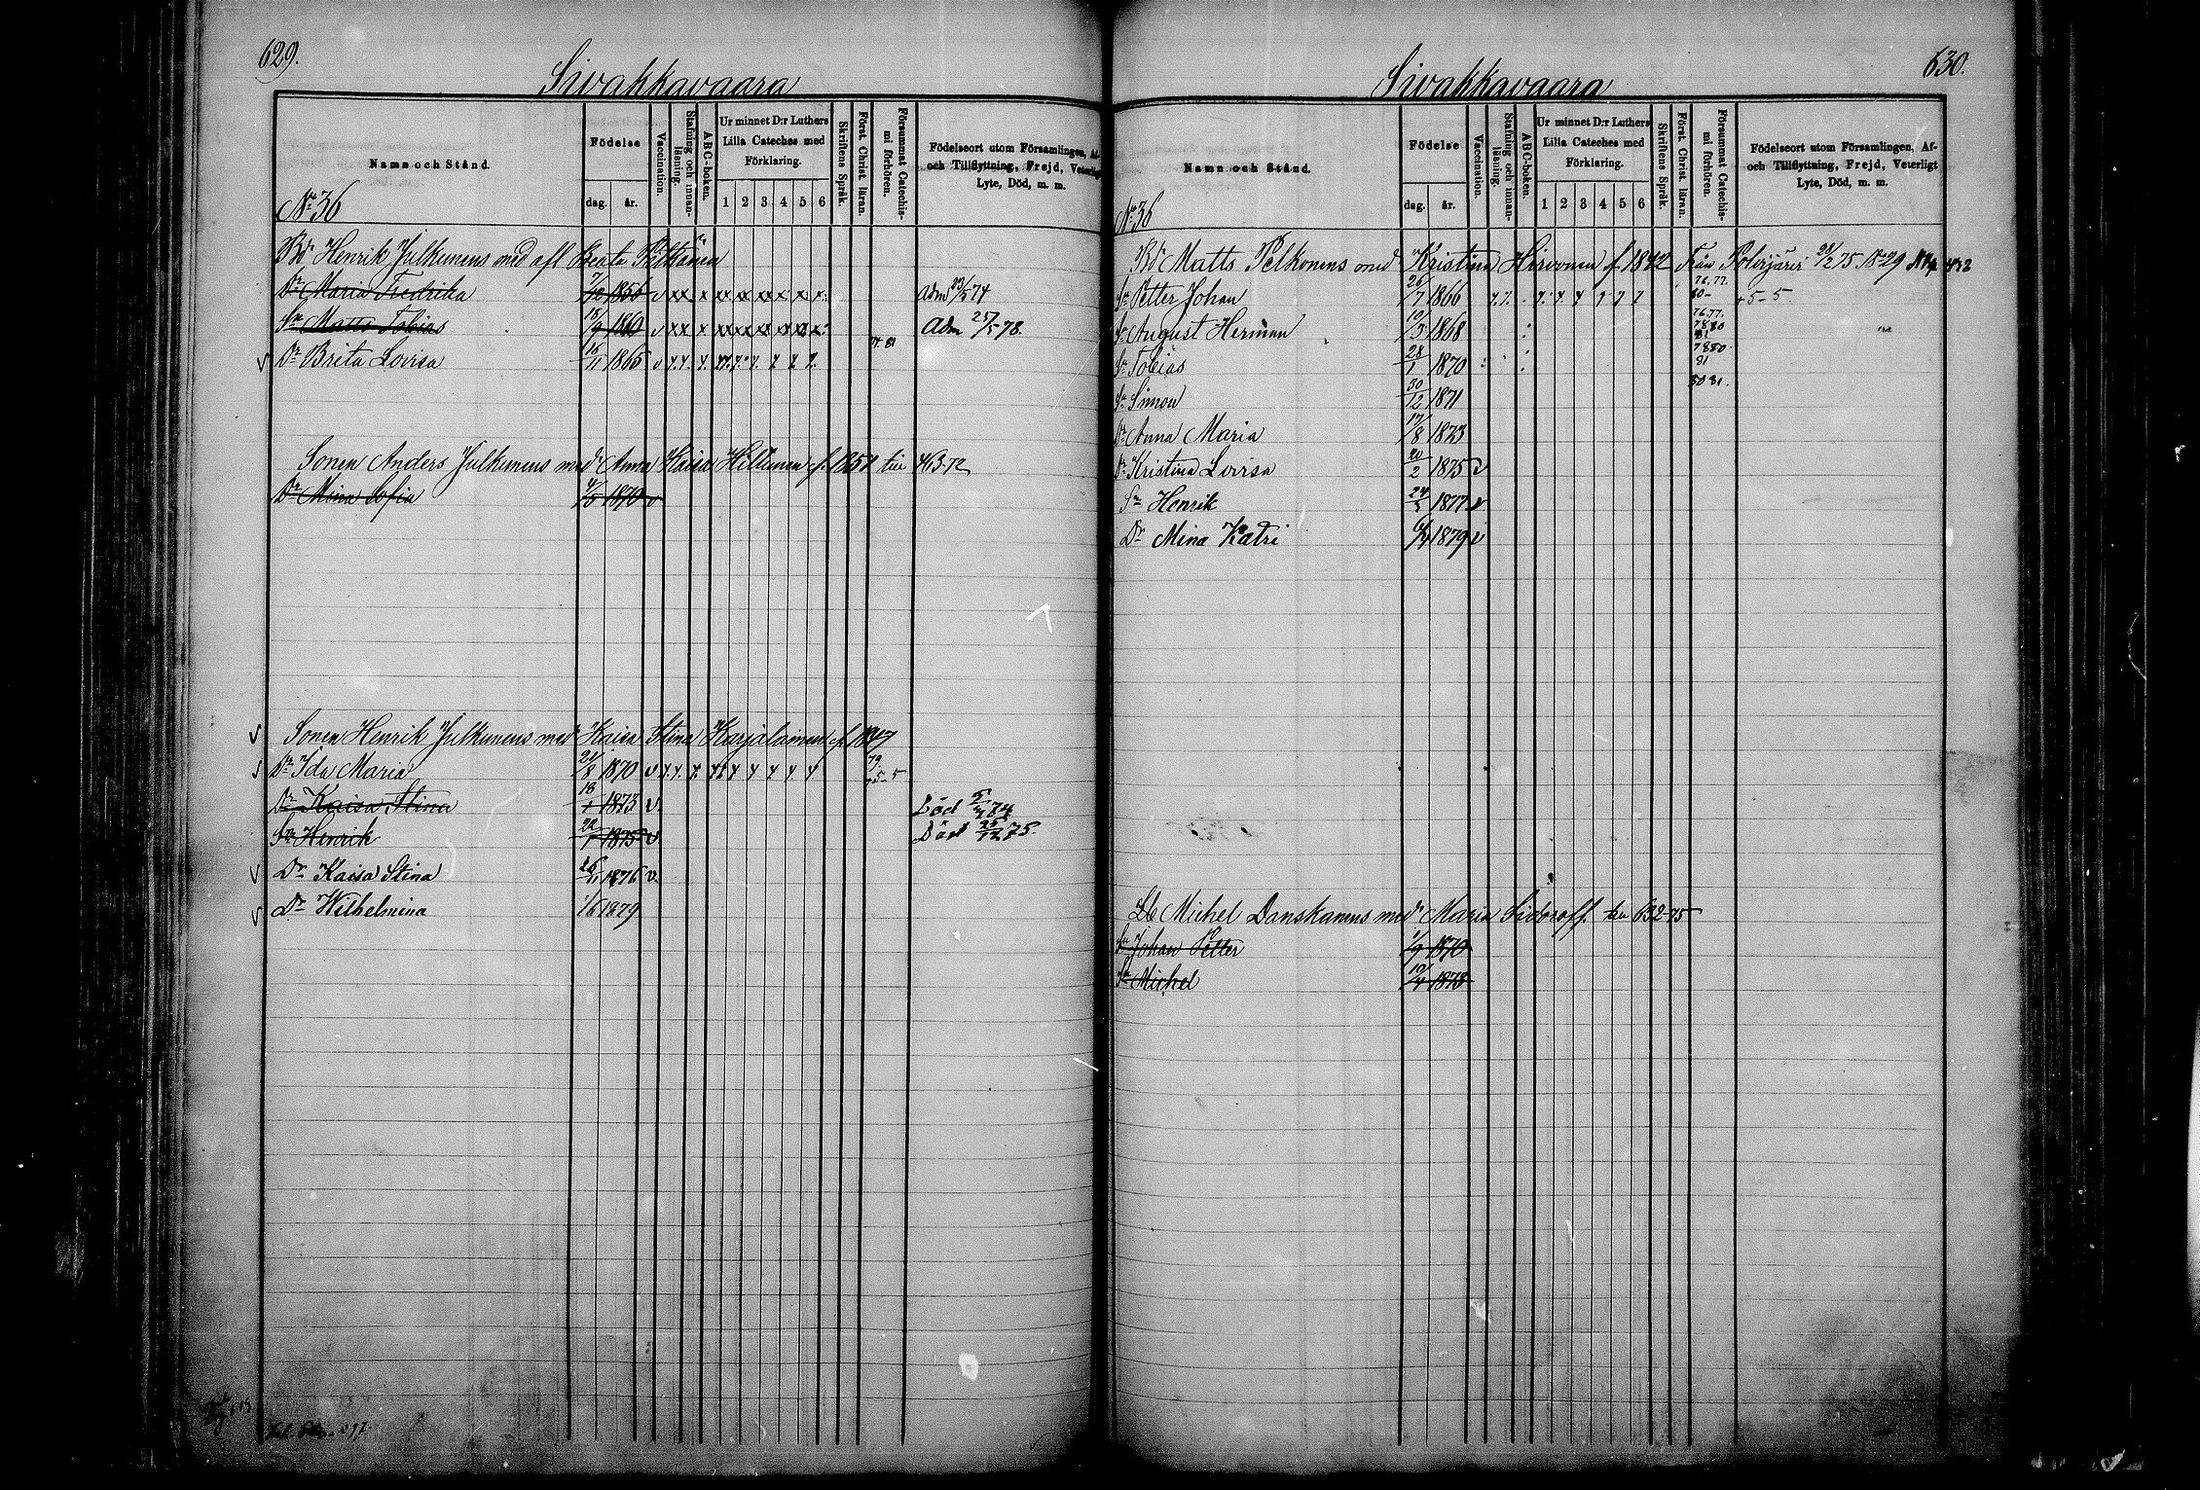 629.
Sivakkavaara
Namn och Stånd.
Födelse
dag.
år.
Vaccination.
Stafning och innanläsning.
ABC-boken.
Ur minnet D:r Luthers
Lilla Cateches med
Förklaring.
1 2 3 4 5 6
Skriftens Språk.
Först. Christ. läran.
Försummat Catechismi förhören.
Födelseort utom Församlingen, Af-
och Tillflyttning, Frejd, Veterligt
Lyte, Död, m. m.
No 36
Bd Henrik Julkunens med afl Beata Pitkänen
Dr Maria Fredrika 7/12 1856 v xx x xx x x x x x Adm 23/5 74
Sn Matts Tobias 18/9 1860 v xx x Adm 25/5 78.
Dr Brita Lovisa 16/11 1865 v
Sonen Anders Julkunens med Anna Kaisa Hiltunen f. 1851 till 463-72
Dr Mina Sofia 4/5 1870 v
Sonen Henrik Julkunens med Kaisa Stina Karjalainen f 1847
Dr Ida Maria 21/8 1870 v
Dr Kaisa Stina 18/1 1873 v Död 74
Sn Henrik 22/1 1875 v Död 25/12 75.
Dr Kaisa Stina 26/11 1876 v
Dr Wilhelmina 1/6 1879
630.
Sivakkavaara
Namn och Stånd.
Födelse
dag.
år.
Vaccination.
Stafning och innanläsning.
ABC-boken.
Ur minnet D:r Luthers
Lilla Cateches med
Förklaring.
1 2 3 4 5 6
Skriftens Språk.
Först. Christ. läran.
Försummat Catechismi förhören.
Födelseort utom Församlingen, Af-
och Tillflyttning, Frejd, Veterligt
Lyte, Död, m. m.
No 36
Bd Matts Pelkonens med Kristina Hirvonen f 1842 Från Polvijärvi 28/2 75 No 29
Sn Petter Johan 26/7 1866 76.77. 80- +5-5
Sn August Herman 10/3 1868 76.77. 7880 81
Sn Tobias 28/1 1870 7880 81
Sn Simon 30/12 1871 80 81.
Dr Anna Maria 17/8 1873
Dr Kristina Lovisa 20/2 1875 v
Sn Henrik 1877 v
Dr Mina Katri 1879 v
Lb Michel Danskanens med Maria Sidoroff. till 632-75
Sn Johan Petter 1/9 1870
Sn Michel 10/4 1873